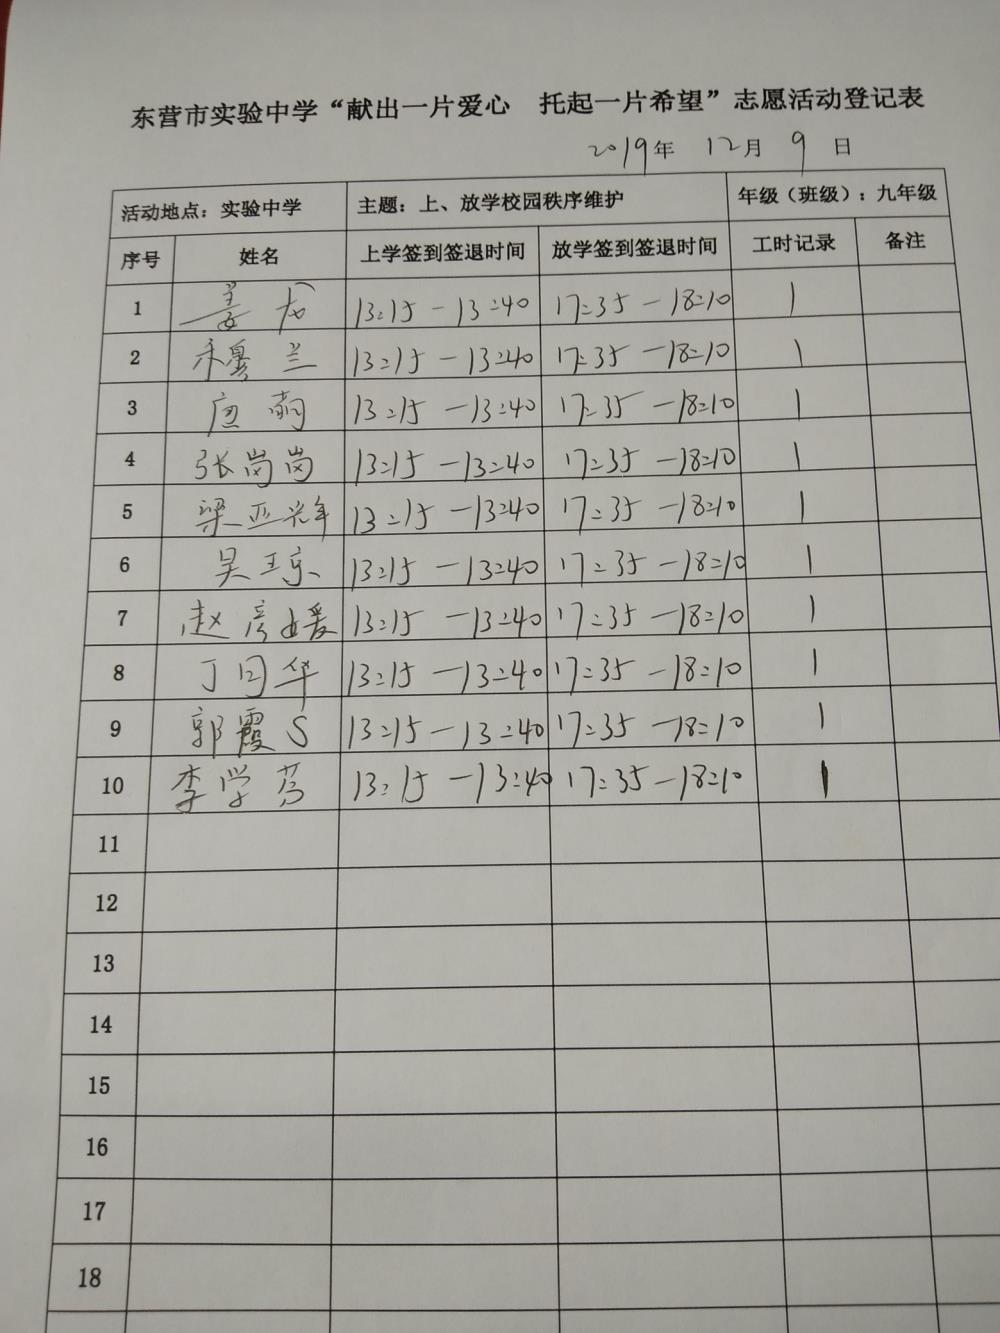 东营市实验中学“献出一片爱心 托起一片希望”志愿活动登记表
2019年 12月 9日
活动地点：实验中学 主题：上、放学校园秩序维护 年级（班级）：九年级
序号 姓名 上学签到签退时间 放学签到签退时间 工时记录 备注
1 姜 13:15-13:40 17:35-18:10 1
2 兰 13:15-13:40 17:35-18:10 1
3 唐 13:15-13:40 17:35-18:10 1
4 张岗岗 13:15-13:40 17:35-18:10 1
5 梁亚 13:15-13:40 17:35-18:10 1
6 吴 13:15-13:40 17:35-18:10 1
7 赵彦媛 13:15-13:40 17:35-18:10 1
8 丁国华 13:15-13:40 17:35-18:10 1
9 郭霞 13:15-13:40 17:35-18:10 1
10 李学芬 13:15-13:40 17:35-18:10 1
11
12
13
14
15
16
17
18